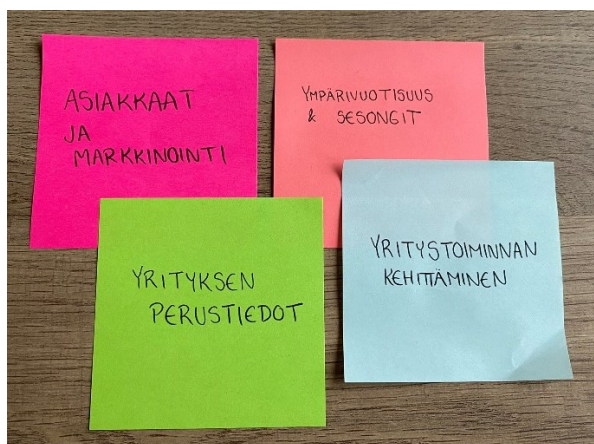 ASIAKKAAT
JA
MARKKINOINTI
YMPÄRIVUOTISUUS
& SESONGIT
YRITYKSEN
PERUSTIEDOT
YRITYSTOIMINNAN
KEHITTÄMINEN